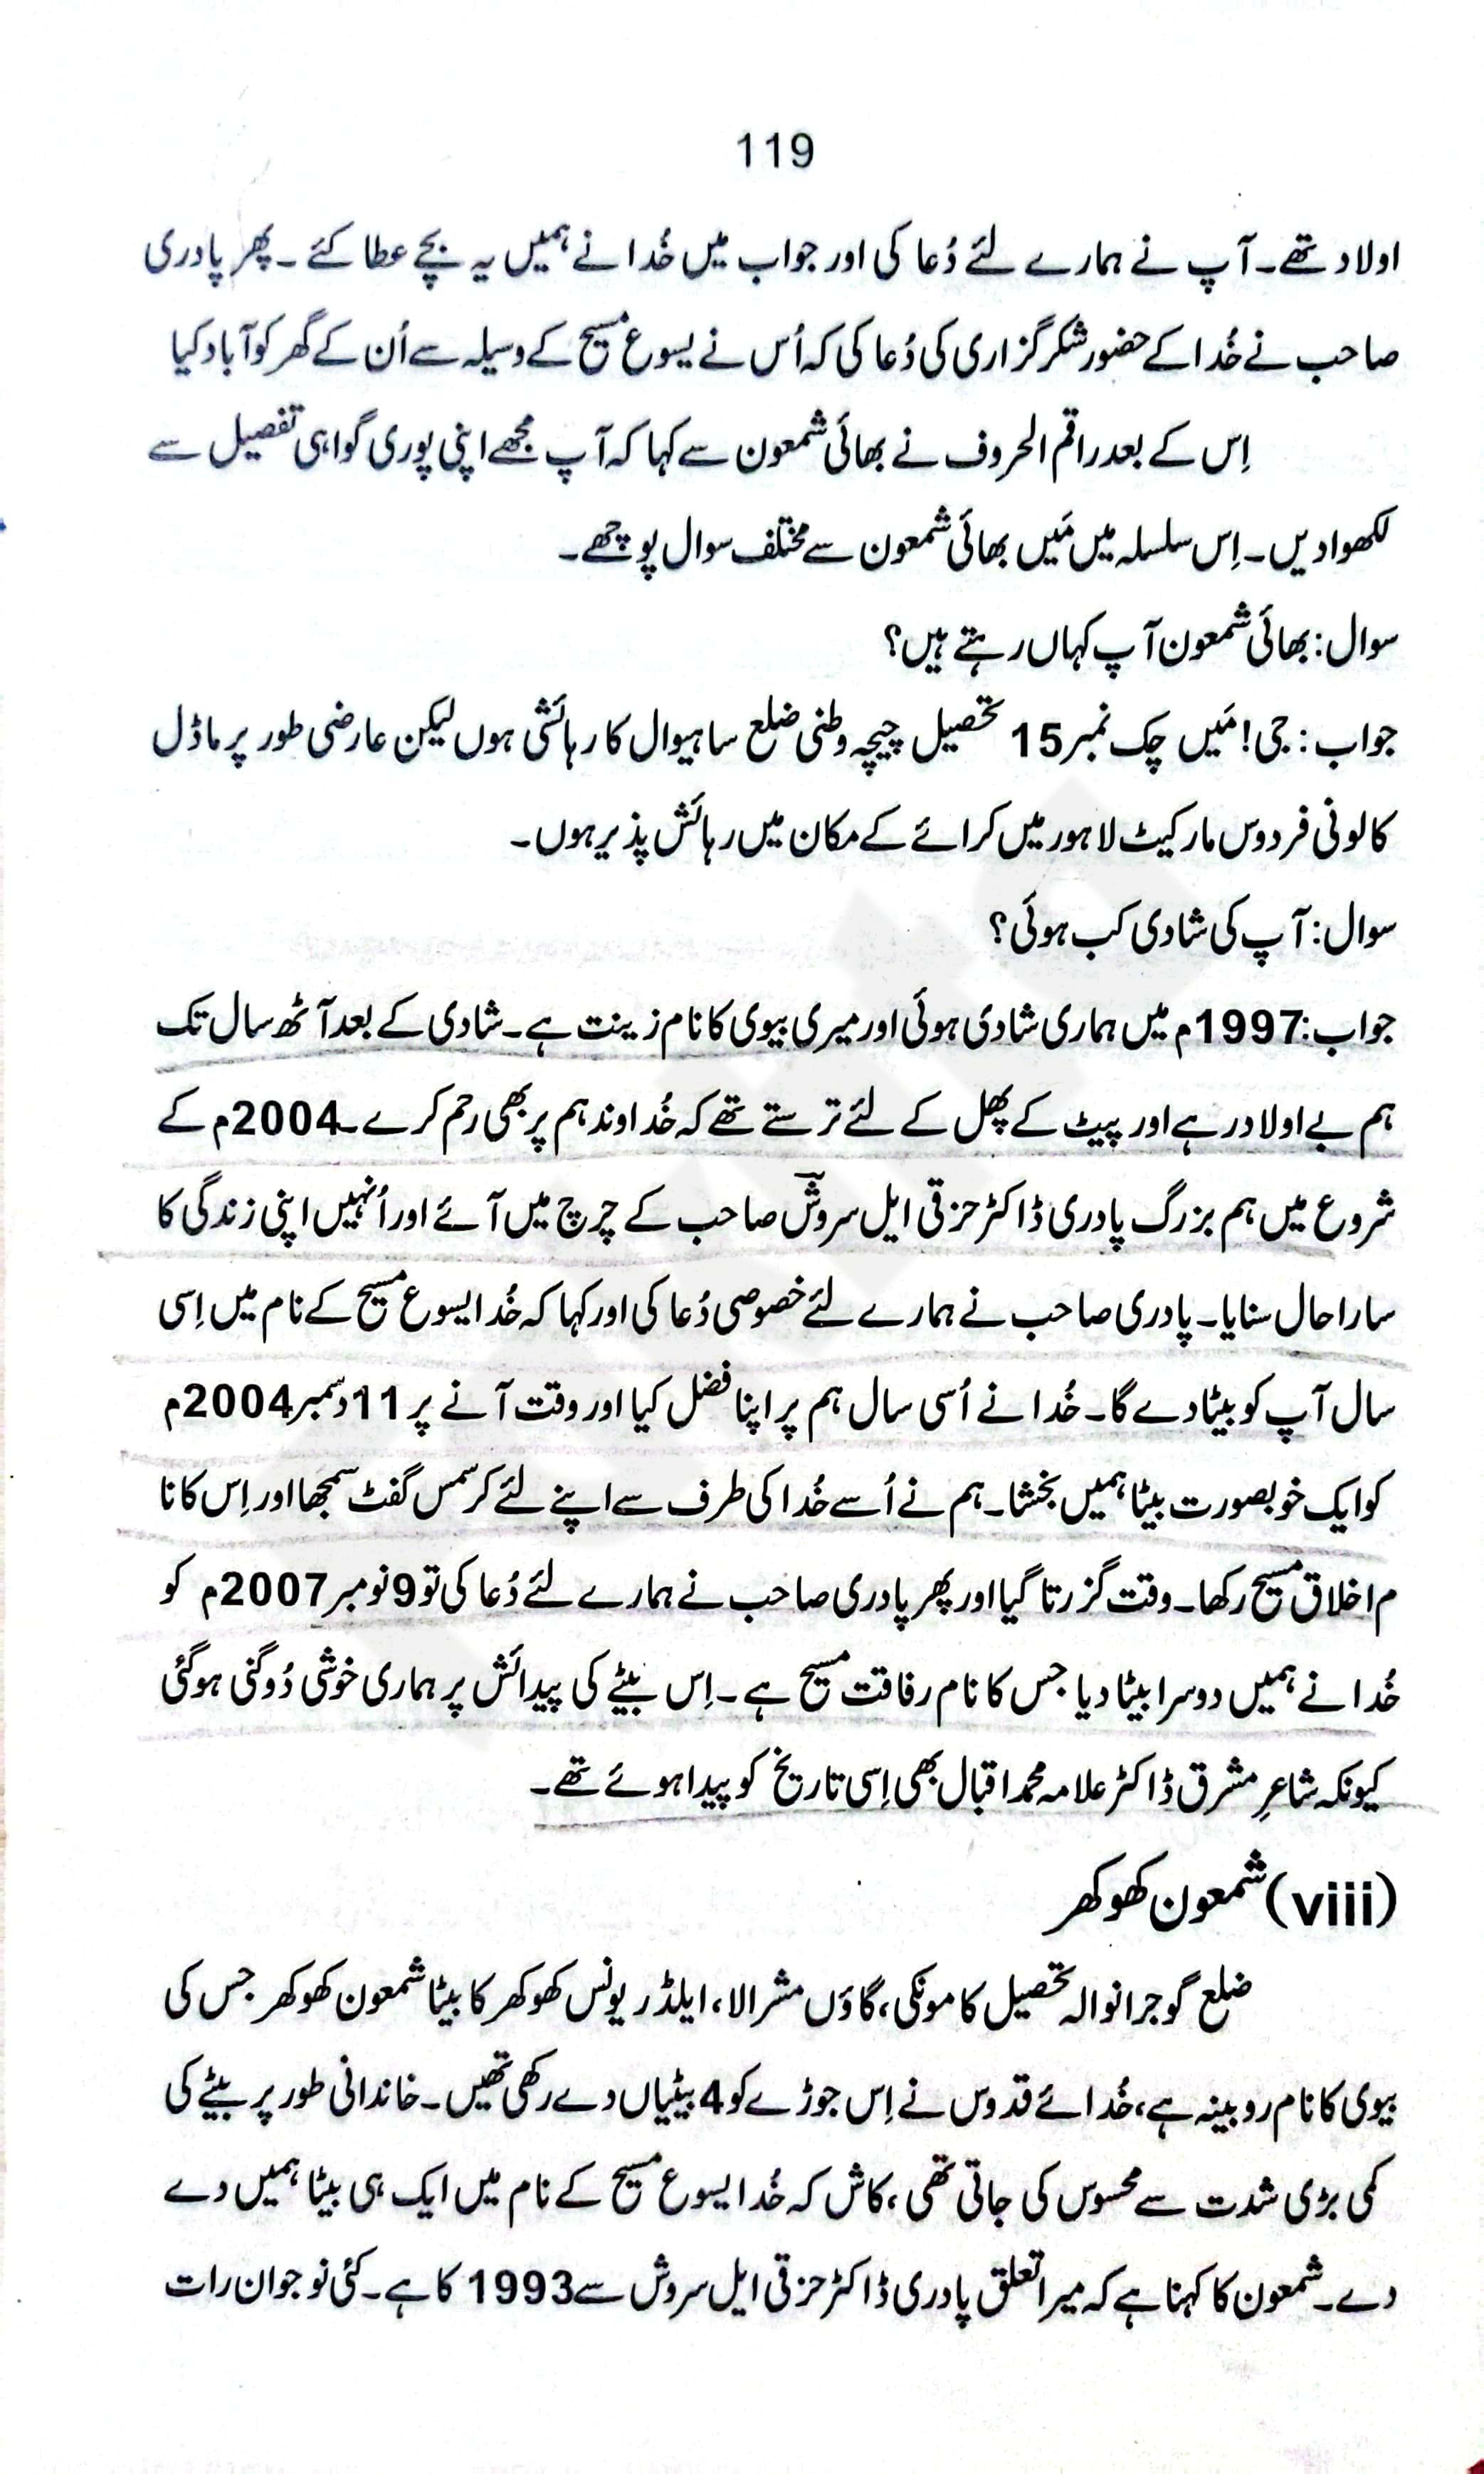 119
اولاد تھے۔ آپ نے ہمارے لئے دُعا کی اور جواب میں خُدا نے ہمیں یہ بچے عطا کئے ۔ پھر پادری
صاحب نے خُدا کے حضور شکر گزاری کی دُعا کی کہ اُس نے یسوع مسیح کے وسیلہ سے اُن کے گھر کو آباد کیا
اِس کے بعد راقم الحروف نے بھائی شمعون سے کہا کہ آپ مجھے اپنی پوری گواہی تفصیل سے
لکھوا دیں۔ اِس سلسلہ میں مَیں بھائی شمعون سے مختلف سوال پوچھے۔
سوال: بھائی شمعون آپ کہاں رہتے ہیں؟
جواب: جی! مَیں چک نمبر 15 تحصیل چیچہ وطنی ضلع ساہیوال کا رہائشی ہوں لیکن عارضی طور پر ماڈل
کالونی فردوس مارکیٹ لاہور میں کرائے کے مکان میں رہائش پذیر ہوں۔
سوال: آپ کی شادی کب ہوئی؟
جواب: 1997م میں ہماری شادی ہوئی اور میری بیوی کا نام زینت ہے۔ شادی کے بعد آٹھ سال تک
ہم بے اولاد رہے اور پیٹ کے پھل کے لئے ترستے تھے کہ خُداوند ہم پر بھی رحم کرے۔ 2004م کے
شروع میں ہم بزرگ پادری ڈاکٹر حزقی ایل سروشؔ صاحب کے چرچ میں آئے اور اُنہیں اپنی زندگی کا
سارا حال سنایا۔ پادری صاحب نے ہمارے لئے خصوصی دُعا کی اور کہا کہ خُدا یسوع مسیح کے نام میں اِسی
سال آپ کو بیٹا دے گا۔ خُدا نے اُسی سال ہم پر اپنا فضل کیا اور وقت آنے پر 11 دسمبر 2004م
کو ایک خوبصورت بیٹا ہمیں بخشا۔ ہم نے اُسے خُدا کی طرف سے اپنے لئے کرسمس گفٹ سمجھا اور اِس کا نا
م اخلاق مسیح رکھا۔ وقت گزرتا گیا اور پھر پادری صاحب نے ہمارے لئے دُعا کی تو 9 نومبر 2007م کو
خُدا نے ہمیں دوسرا بیٹا دیا جس کا نام رفاقت مسیح ہے۔ اِس بیٹے کی پیدائش پر ہماری خوشی دُوگنی ہو گئی
کیونکہ شاعرِ مشرق ڈاکٹر علامہ محمد اقبال بھی اِسی تاریخ کو پیدا ہوئے تھے۔
(viii) شمعون کھوکھر
ضلع گوجرانوالہ تحصیل کامونکی، گاؤں مشرالا، ایلڈر یونس کھوکھر کا بیٹا شمعون کھوکھر جس کی
بیوی کا نام روبینہ ہے، خُدائے قدوس نے اِس جوڑے کو 4 بیٹیاں دے رکھی تھیں۔ خاندانی طور پر بیٹے کی
کمی بڑی شدت سے محسوس کی جاتی تھی، کاش کہ خُدا یسوع مسیح کے نام میں ایک ہی بیٹا ہمیں دے
دے۔ شمعون کا کہنا ہے کہ میرا تعلق پادری ڈاکٹر حزقی ایل سروش سے 1993 کا ہے۔ کئی نوجوان رات